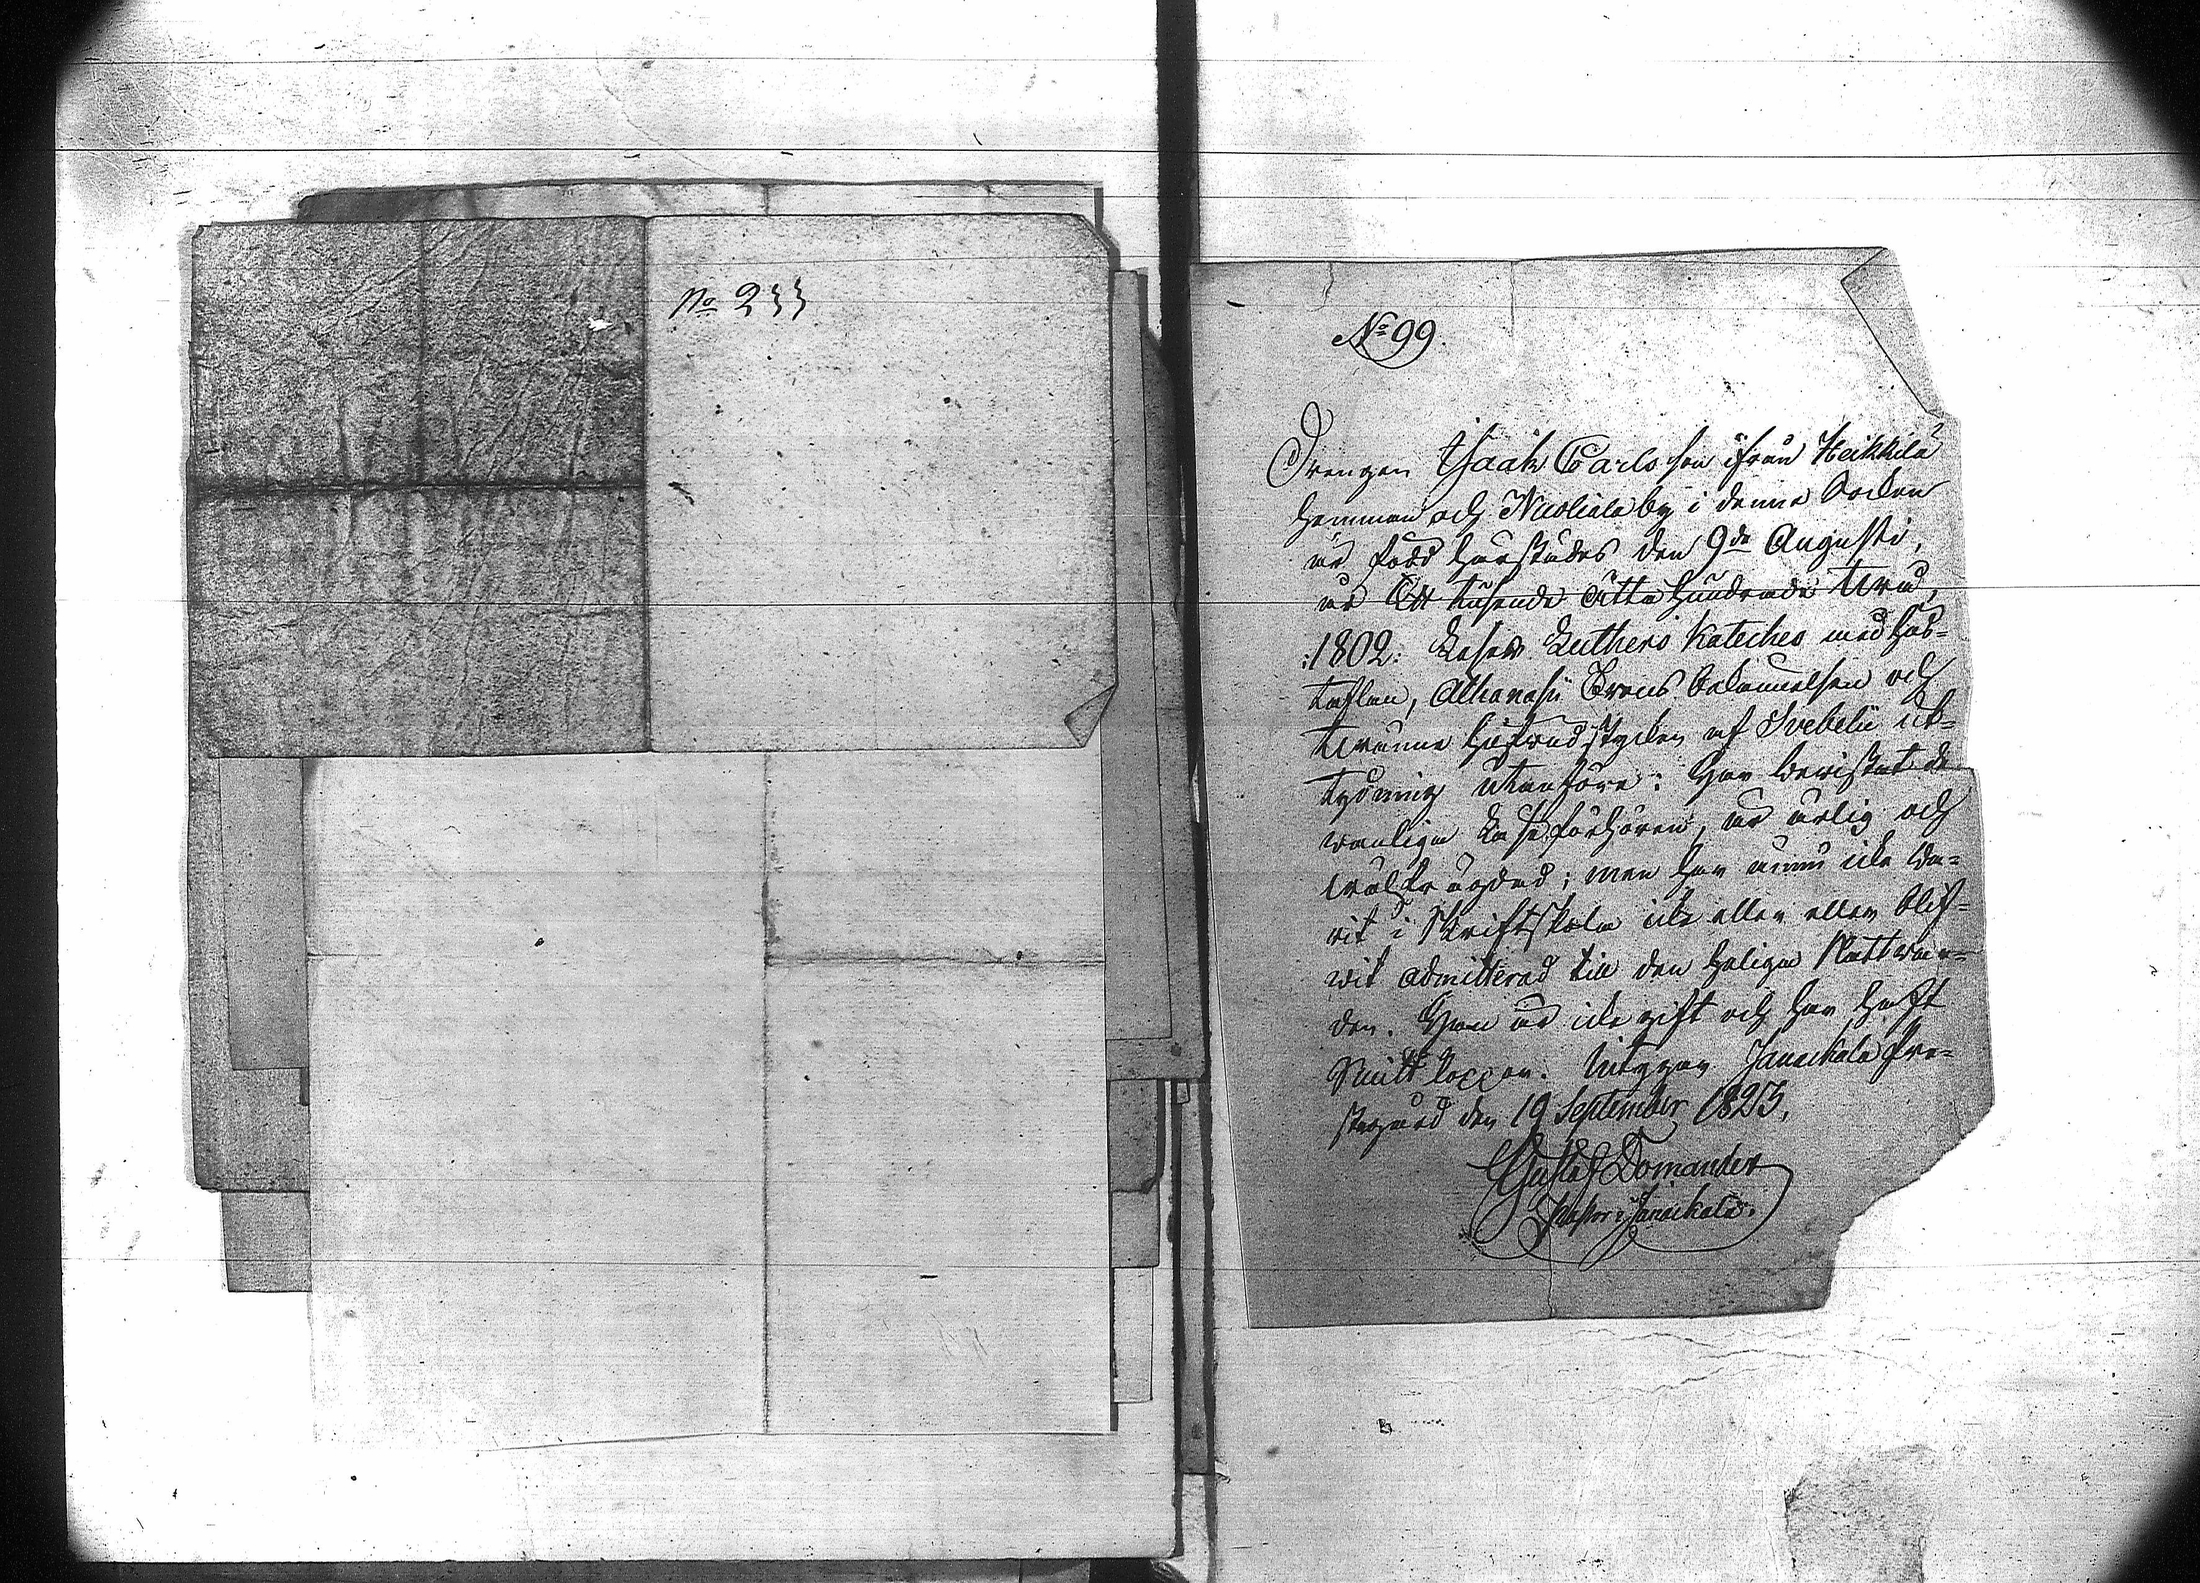 No 233
No 99.
Drengen Isaak Carlsson ifrån Heikkilä
hemman och Nuoliala by i denna Socken
är född härstädes den 9de Augusti,
år Ett tusende åtta hundrade två,
:1802: Läser Lutheri Kateches med hus-
taflan, Athanasii Trons bekännelsen och
trenne hufvudstycken af Svebelii ut-
tydning utanföre: har bewistat de
wanliga Läseförhören, är ärlig och
wälfrägdad; men har ännu icke wa-
rit i Skriftskola icke eller eller blif-
wit admitterad till den heliga Nattwar-
den. Han är icke gift och har haft
Smittkoppor. Intygar Janackala Pre-
stegård den 19 September 1823.
Gustaf Domander
Pastor i Janackala.